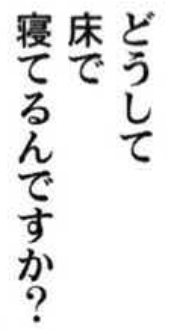 どうして
床で
寝てるんですか？